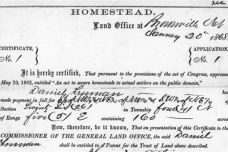 HOMESTEAD.
Land Office at Brownville Neb
January 20th 1868.
CERTIFICATE
No. 1
APPLICATION
No. 1
It is hereby certified, That pursuant to the provisions of the act of Congress, approved
May 20, 1862, entitled "An act to secure homesteads to actual settlers on the public domain,"
Daniel Freeman has
made payment in full for
of
Section
in Township
of Range five (5) E containing 160 acres.
Now, therefore, be it known, That on presentation of this Certificate to the
COMMISSIONER OF THE GENERAL LAND OFFICE, the said Daniel
Freeman shall be entitled to a Patent for the Tract of Land above described.